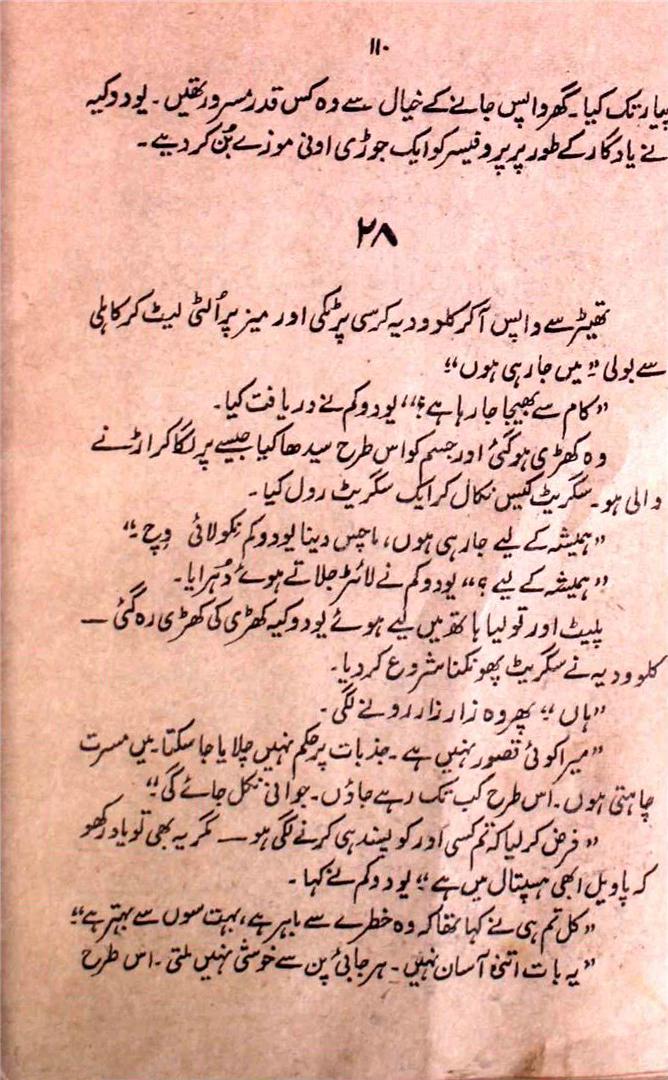 ۱۱۰
پیار تک کیا۔ گھر واپس جانے کے خیال سے وہ کس قدر مسرور تھیں۔ یودوکیہ
نے یادگار کے طور پر پروفیسر کو ایک جوڑی اونی موزے بُن کر دیے۔
۲۸
تھیٹر سے واپس آ کر کلوودیہ کرسی پر ٹکی اور میز پر اُلٹی لیٹ کر کاہلی
سے بولی ”میں جا رہی ہوں“
”کام سے بھیجا جا رہا ہے؟“ یودوکم نے دریافت کیا۔
وہ کھڑی ہو گئی اور جسم کو اس طرح سیدھا کیا جیسے پر لگا کر اڑنے
والی ہو۔ سگریٹ کیس نکال کر ایک سگریٹ رول کیا۔
”ہمیشہ کے لیے جا رہی ہوں، ماچس دینا یودوکم نکولائی وِچ۔“
”ہمیشہ کے لیے؟“ یودوکم نے لائٹر جلاتے ہوئے دُہرایا۔
پلیٹ اور تولیا ہاتھ میں لیے ہوئے یودوکیہ کھڑی کی کھڑی رہ گئی —
کلوودیہ نے سگریٹ پھونکنا شروع کر دیا۔
”ہاں“ پھر وہ زار زار رونے لگی۔
”میرا کوئی قصور نہیں ہے۔ جذبات پر حکم نہیں چلایا جا سکتا۔ میں مسرت
چاہتی ہوں۔ اس طرح کب تک رہے جاؤں۔ جوانی نکل جائے گی“
”فرض کر لیا کہ تم کسی اور کو پسند ہی کرنے لگی ہو — مگر یہ بھی تو یاد رکھو
کہ پاویل ابھی ہسپتال میں ہے“ یودوکم نے کہا۔
”کل تم ہی نے کہا تھا کہ وہ خطرے سے باہر ہے، بہت سوں سے بہتر ہے“
”یہ بات اتنی آسان نہیں۔ ہر جائی پن سے خوشی نہیں ملتی۔ اس طرح